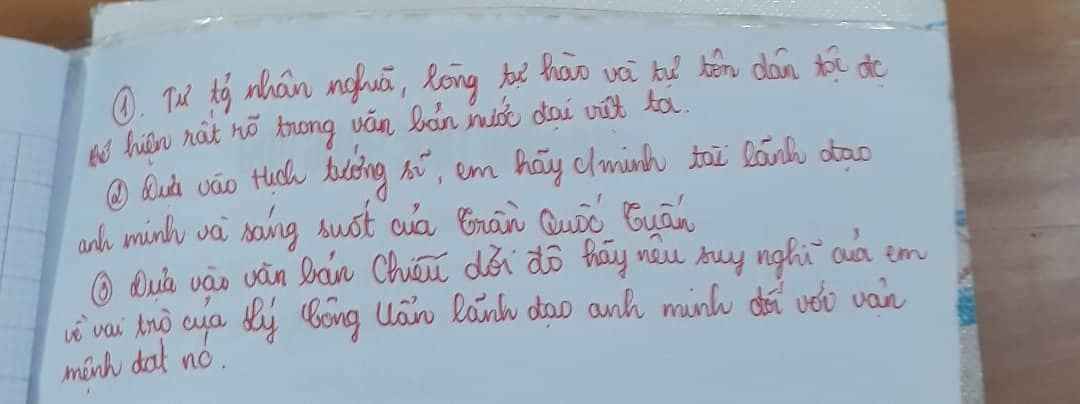 ①. Tư tg nhân nghĩa, lòng tự hào và tự tôn dân tộc đc
thể hiện rất rõ trong văn bản nước đại việt ta.
② Dựa vào Hịch tướng sĩ, em hãy c/minh tài lãnh đạo
anh minh và sáng suốt của Trần Quốc Tuấn
③ Dựa vào văn bản Chiếu dời đô hãy nêu suy nghĩ của em
về vai trò của Lý Công Uẩn lãnh đạo anh minh đối với vận
mệnh đất nc.